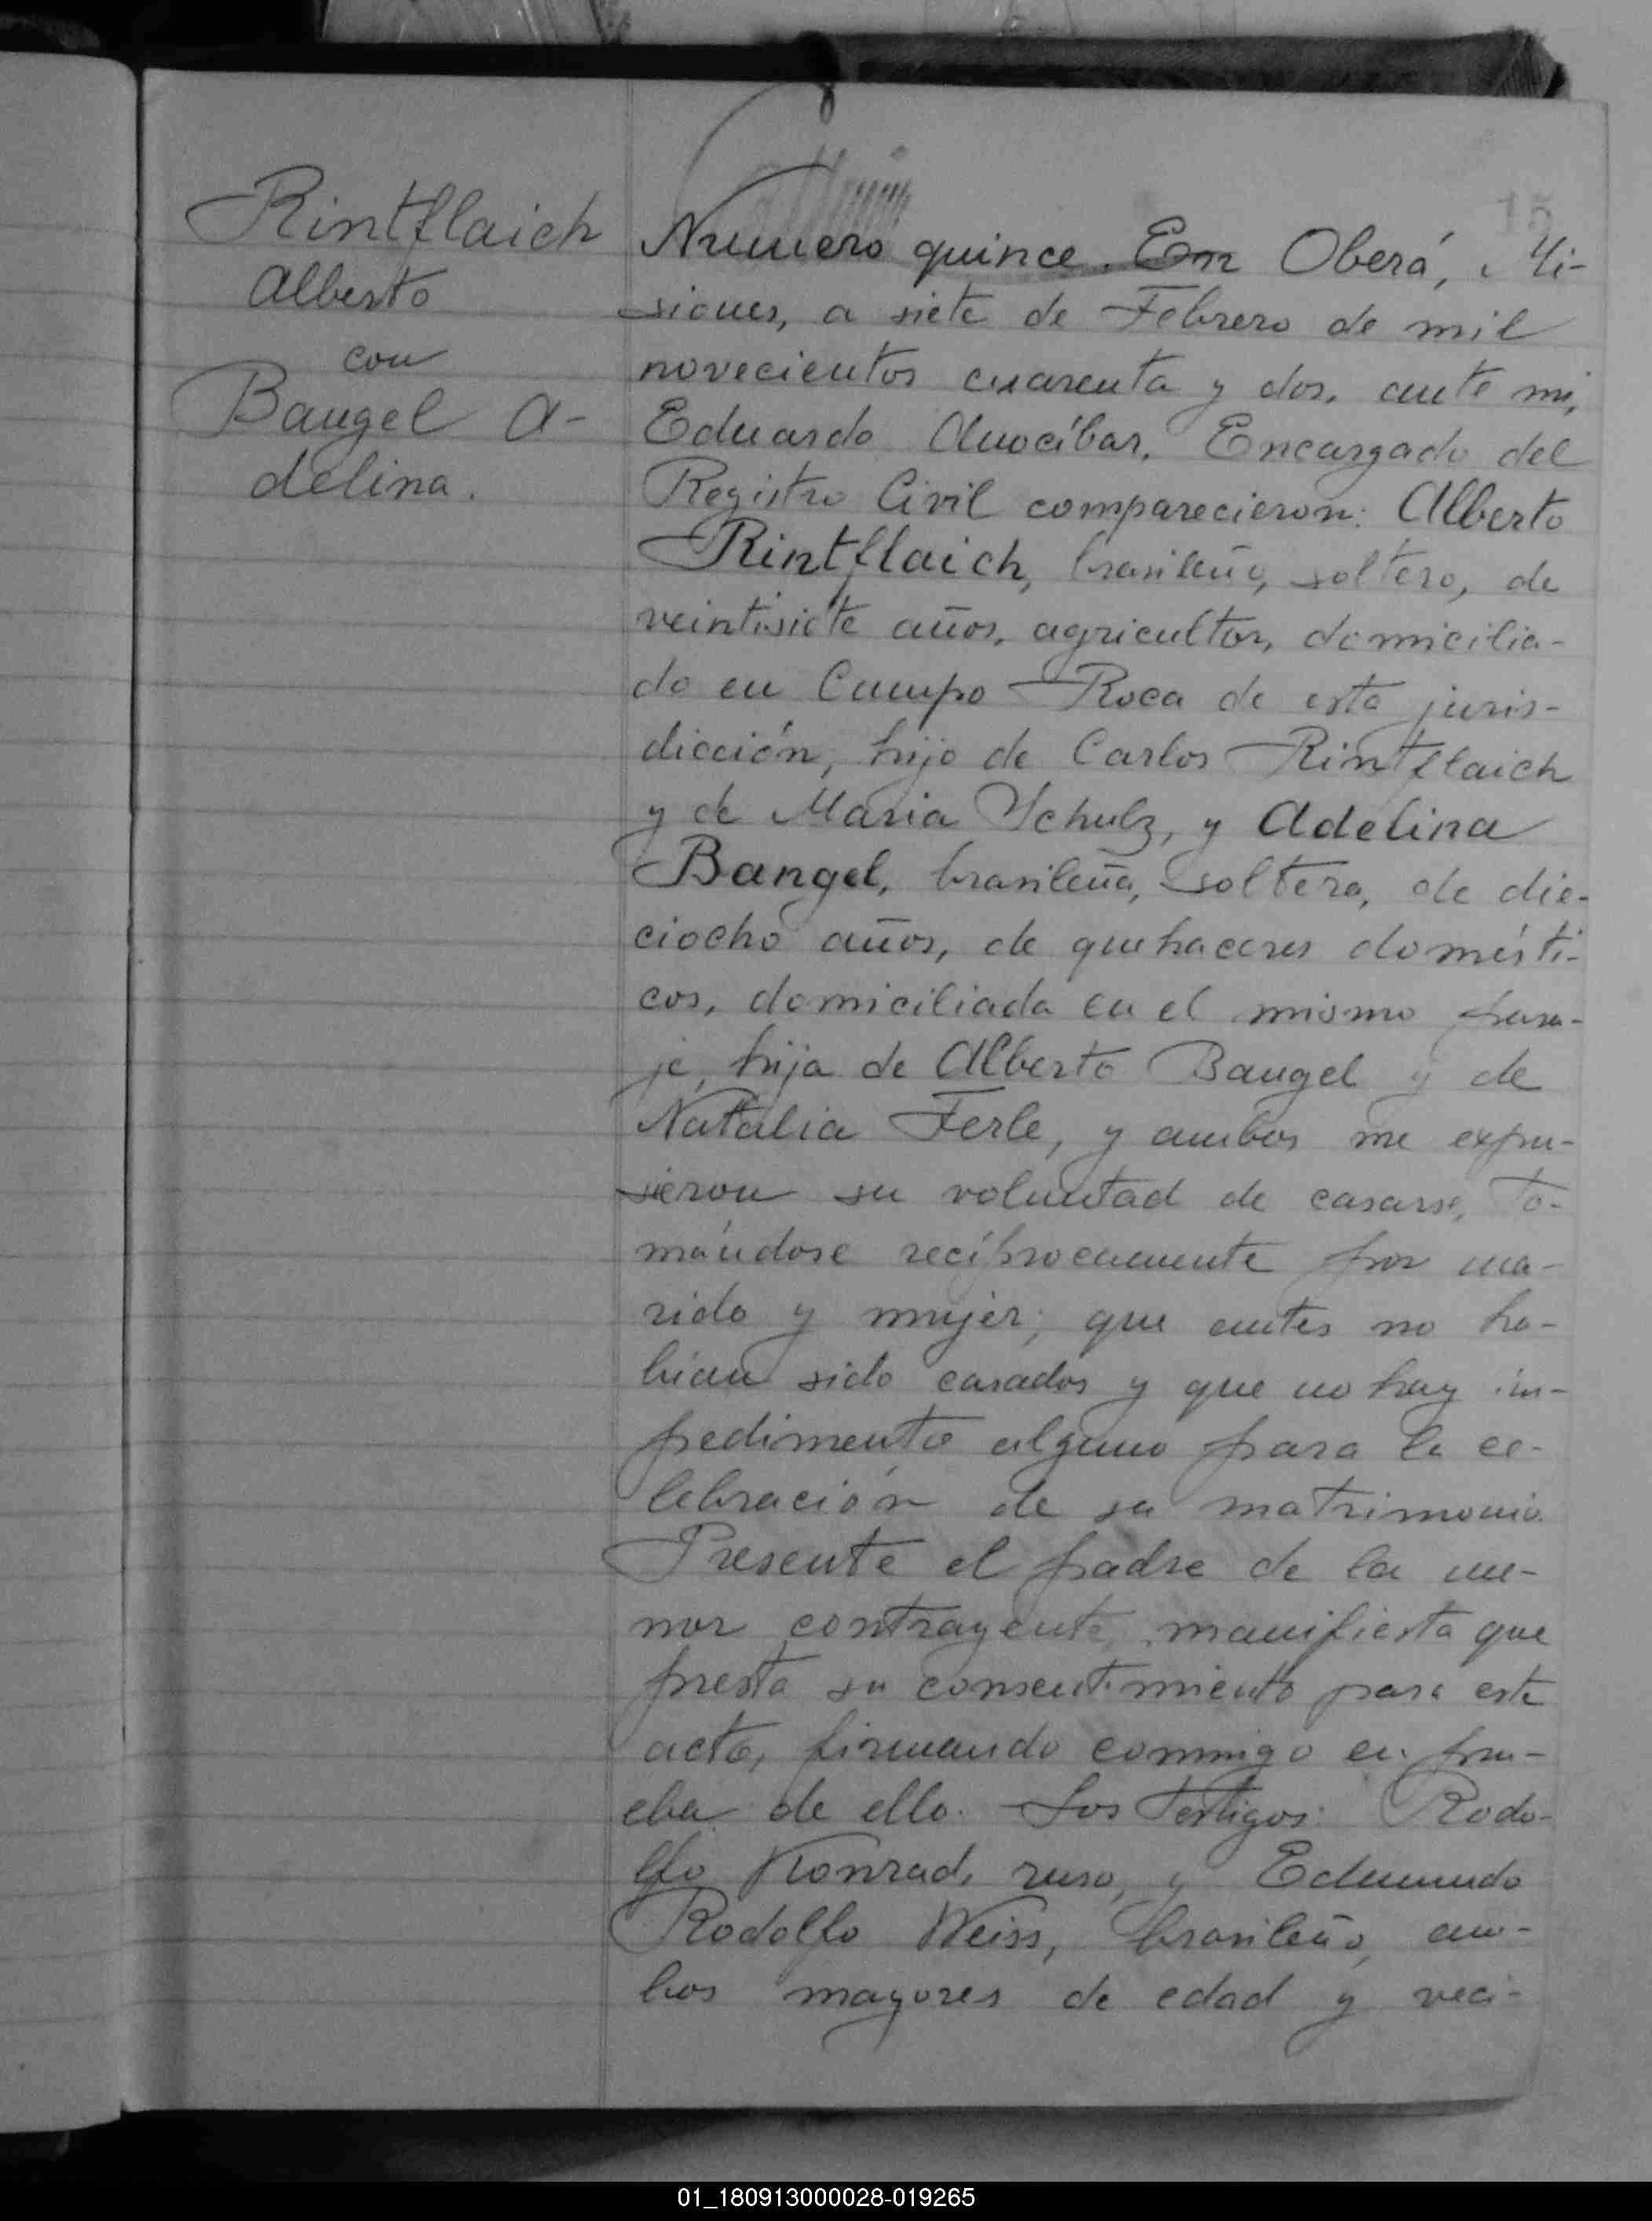 15
Rintflaich
Alberto
con
Bangel A-
delina.
Numero quince. En Oberá, Mi-
siones, a siete de Febrero de mil
novecientos cuarenta y dos, ante mi,
Eduardo Anocíbar, Encargado del
Registro Civil comparecieron: Alberto
Rintflaich, brasileño, soltero, de
veintisiete años, agricultor, domicilia-
do en Campo Roca de esta juris-
dicción, hijo de Carlos Rintflaich
y de Maria Schulz, y Adelina
Bangel, brasileña, soltera, de die-
ciocho años, de quehaceres domésti-
cos, domiciliada en el mismo para-
je, hija de Alberto Bangel y de
Natalia Ferle, y ambos me expu-
sieron su voluntad de casarse, to-
mándose recíprocamente por ma-
rido y mujer; que antes no ha-
bían sido casados y que no hay im-
pedimento alguno para la ce-
lebración de su matrimonio.
Presente el padre de la me-
nor contrayente, manifiesta que
presta su consentimiento para este
acto, firmando conmigo en pru-
eba de ello. Los Testigos: Rodo-
lfo Konrad, ruso, y Edmundo
Rodolfo Weiss, brasileño, am-
bos mayores de edad y veci-
01_180913000028-019265